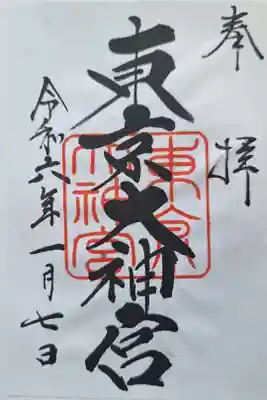 奉拝
東京大神宮
東京大神宮
令和六年一月七日